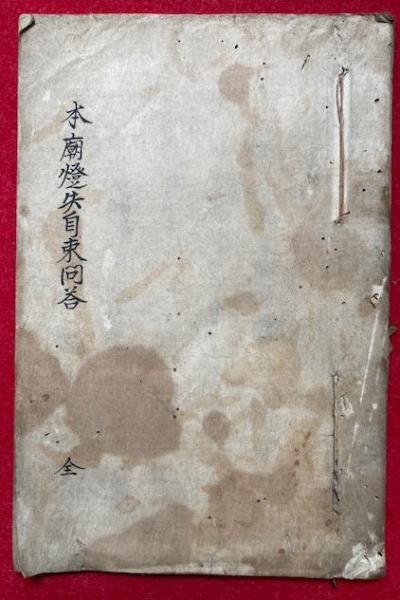 本廟燈失自東問答
全